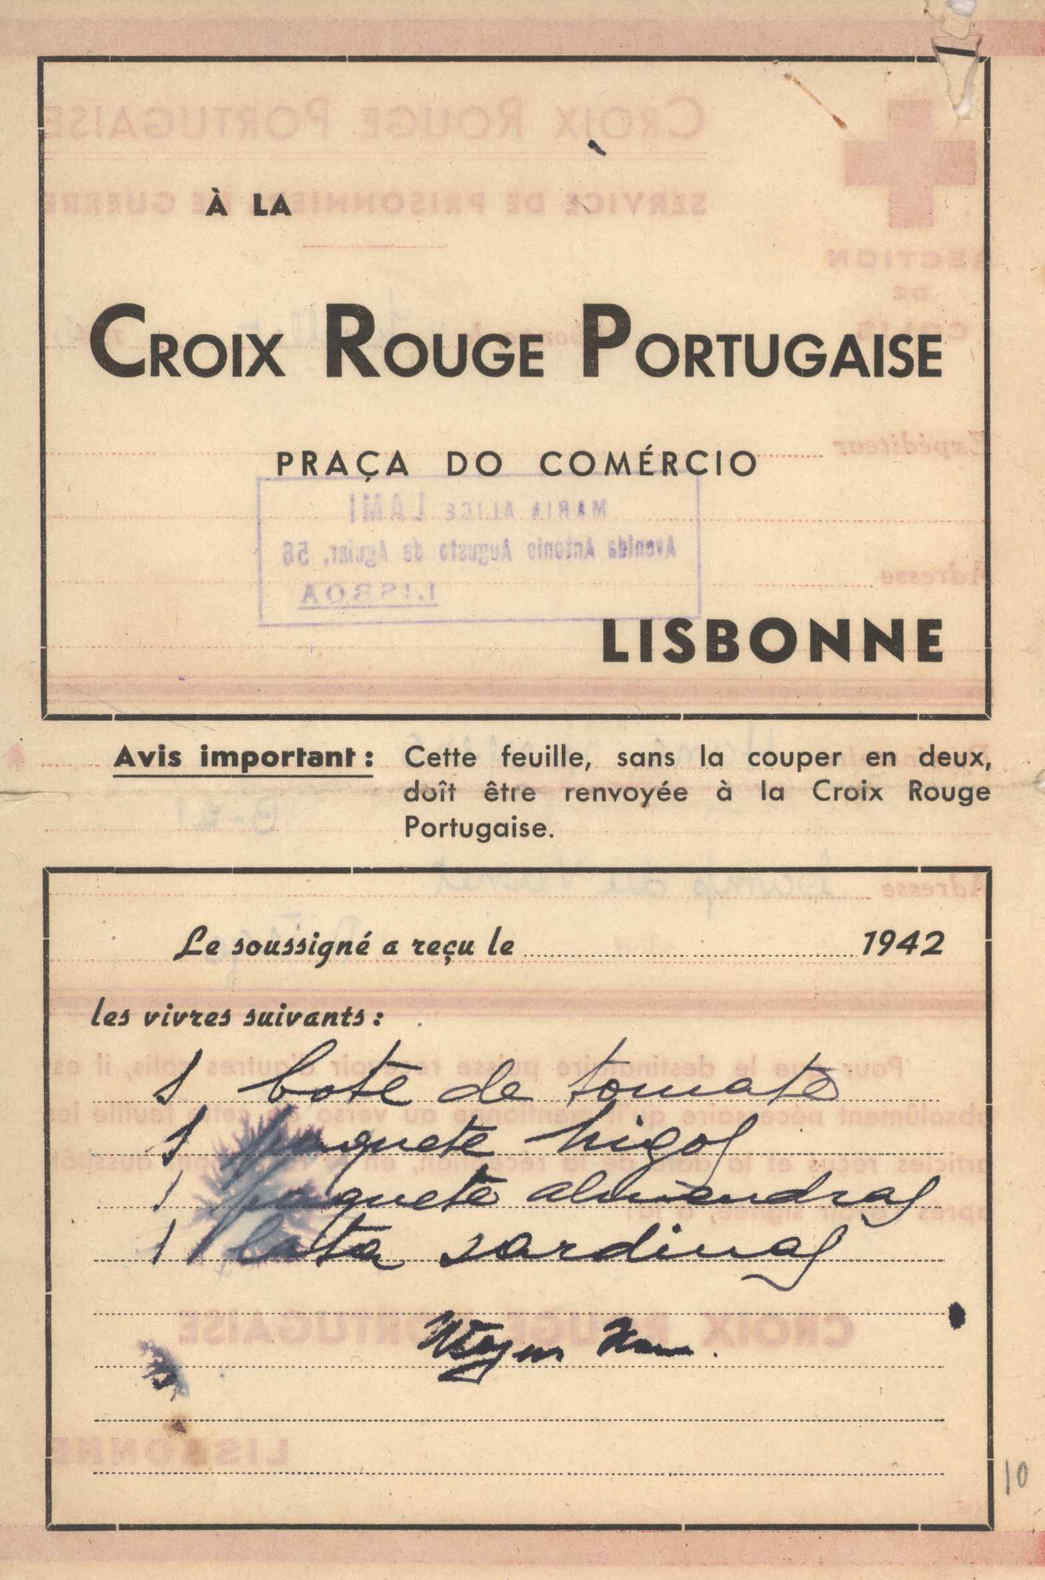 À LA
CROIX ROUGE PORTUGAISE
PRAÇA DO COMÉRCIO
MARIA ALICE LAMI
Avenida Antonio Augusto de Aguiar, 58
LISBOA
LISBONNE
Avis important: Cette feuille, sans la couper en deux,
doit être renvoyée à la Croix Rouge
Portugaise.
Le soussigné a reçu le 1942
les vivres suivants:
1 bote de tomate
1 paquete higos
1 paquete almendras
1 lata sardinas
10